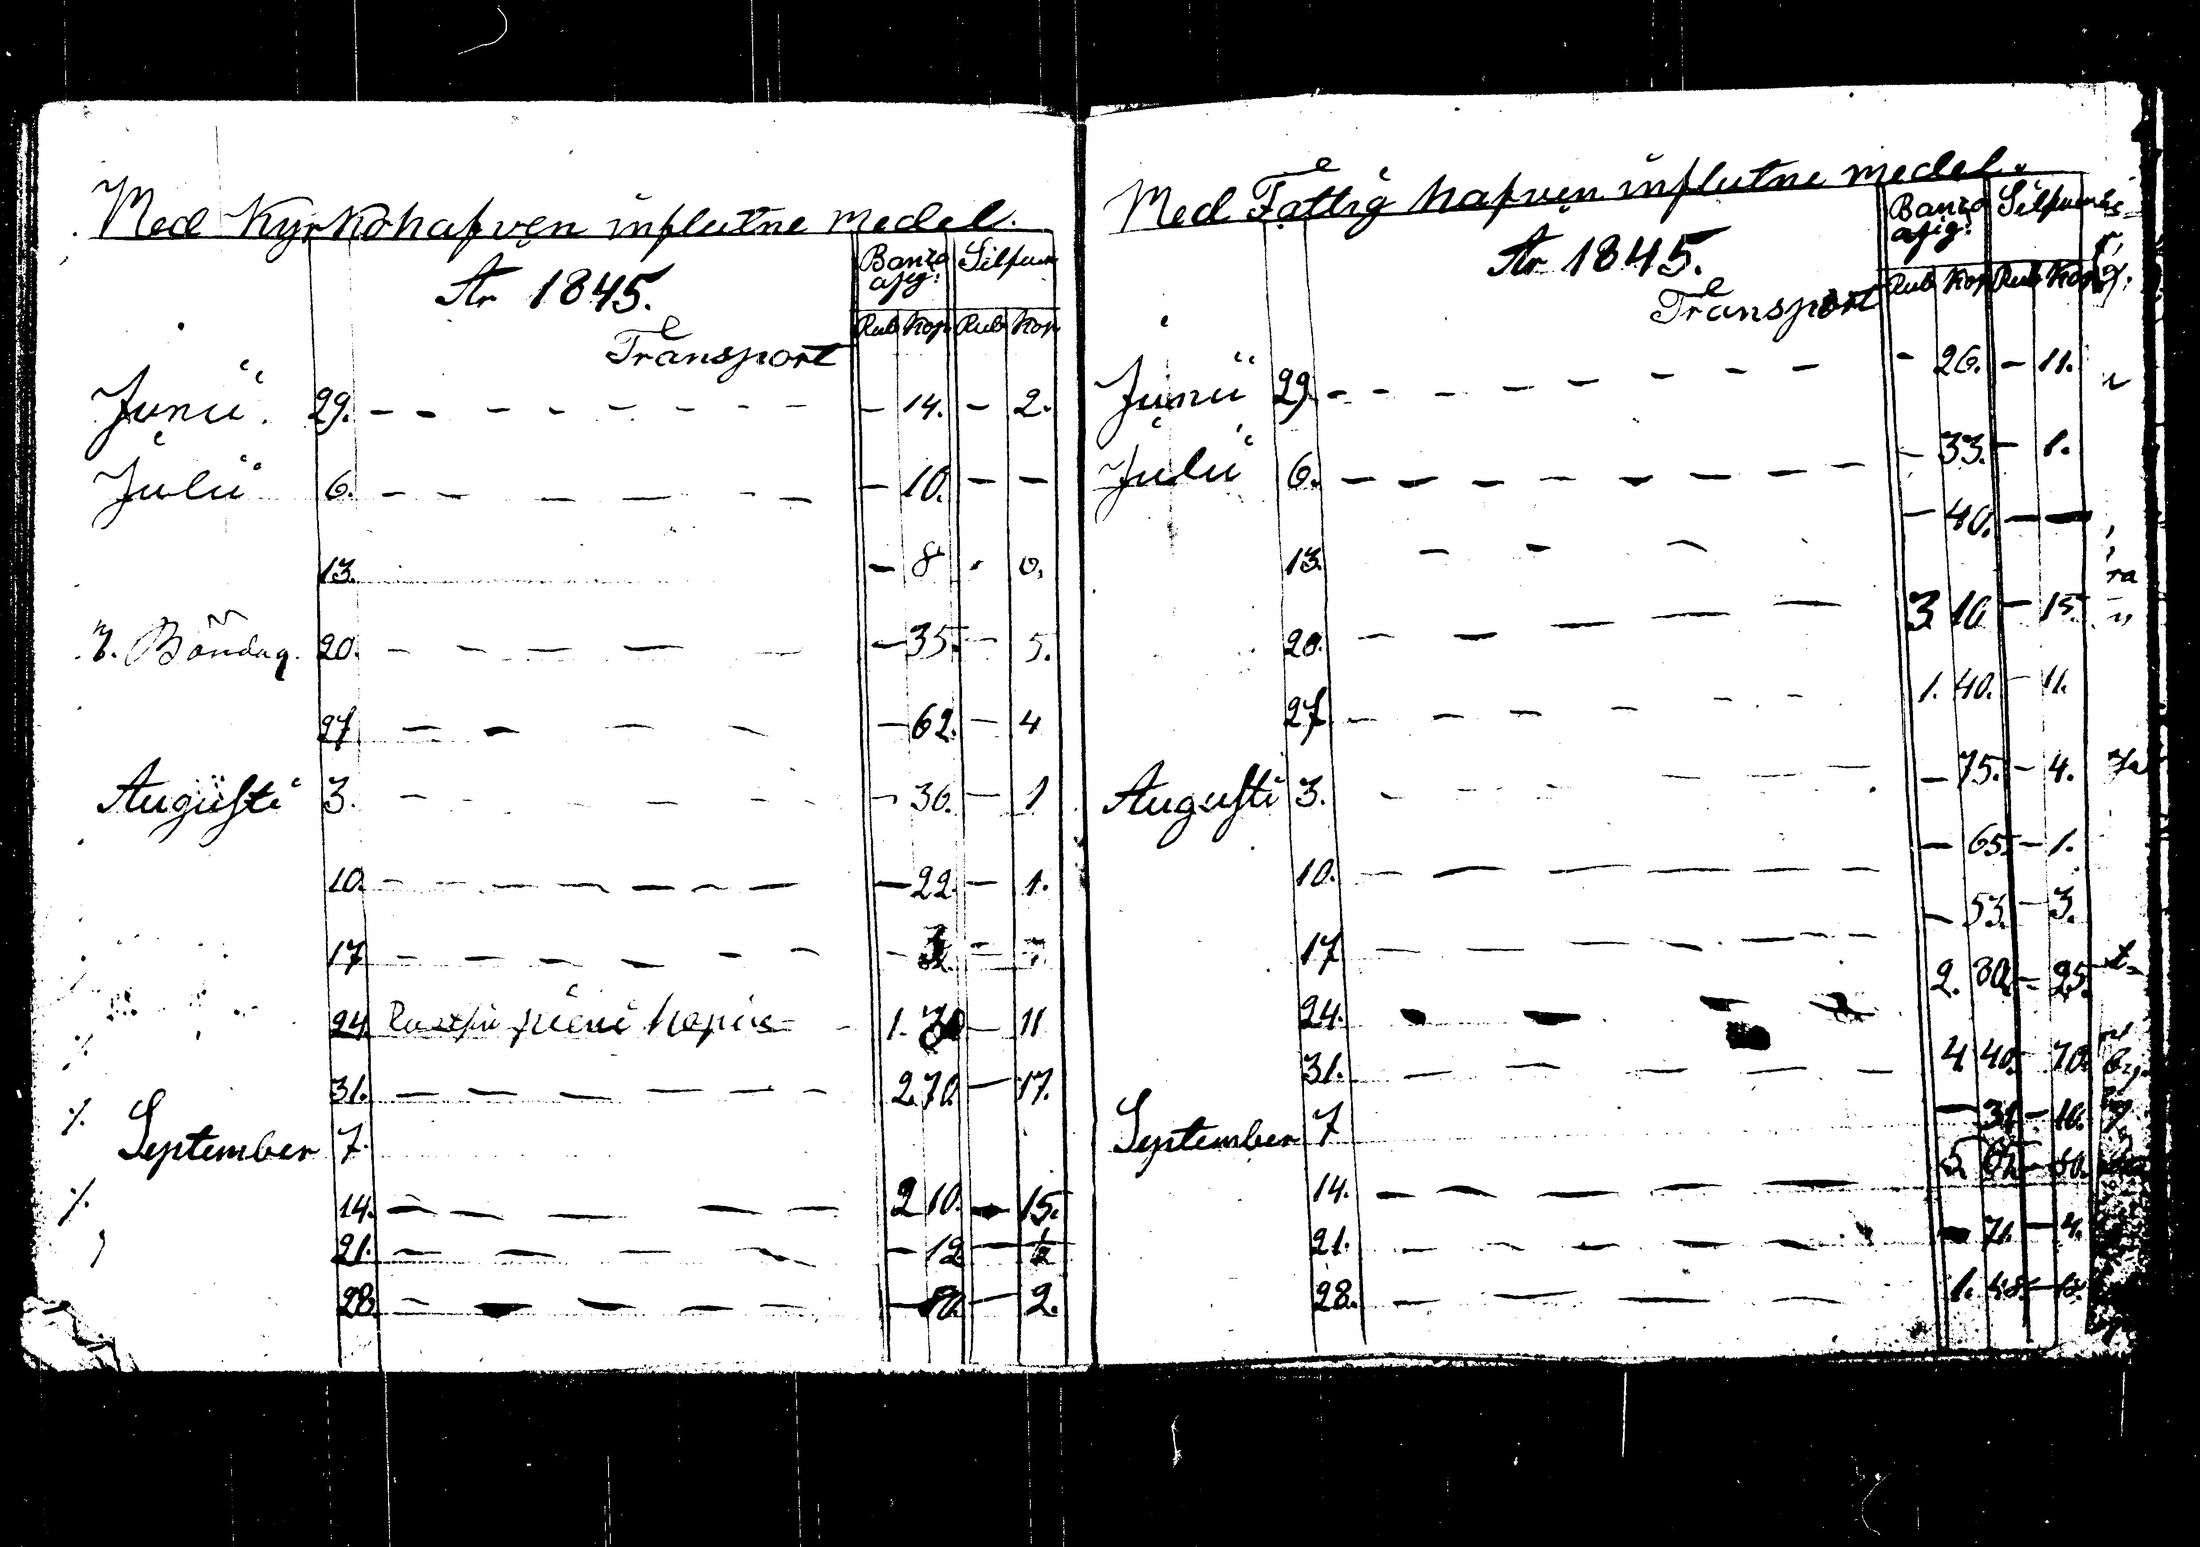 Med Kyrkohafven influtne medel.
Banko assig: Silfver
År 1845.
Rub Kop Rub Kop
Transport
Junii 29. — 14. — 2.
Julii 6. — 10. — —
13. — 8 0.
3. Böndag. 20. — 35. — 5.
27. — 62. — 4
Augusti 3. — 36. — 1
10. — 22. — 1.
17.
24. 1. — 11
31. 2. 70. — 17.
September 7.
14. 2 10. — 15.
21. — 12 — ½
28. — 80. — 2.
Med Fattig hafven influtne medel.
Banko assig: Silfver
År 1845.
Rub Kop Rub Kop
Transport
Junii 29. — 26. — 11.
Julii 6. — 33. — 1.
13. — 40. — —
20. 3 10 — 15.
27. 1. 40. — 11.
Augusti 3. — 75. — 4.
10. — 65. — 1.
17. — 53. — 3.
24. 2. 30. — 25.
31. 4 40. — 70.
September 7 — 31 — 10.
14. 5 — 50.
21. — 71. — 4.
28. 1. 48. —